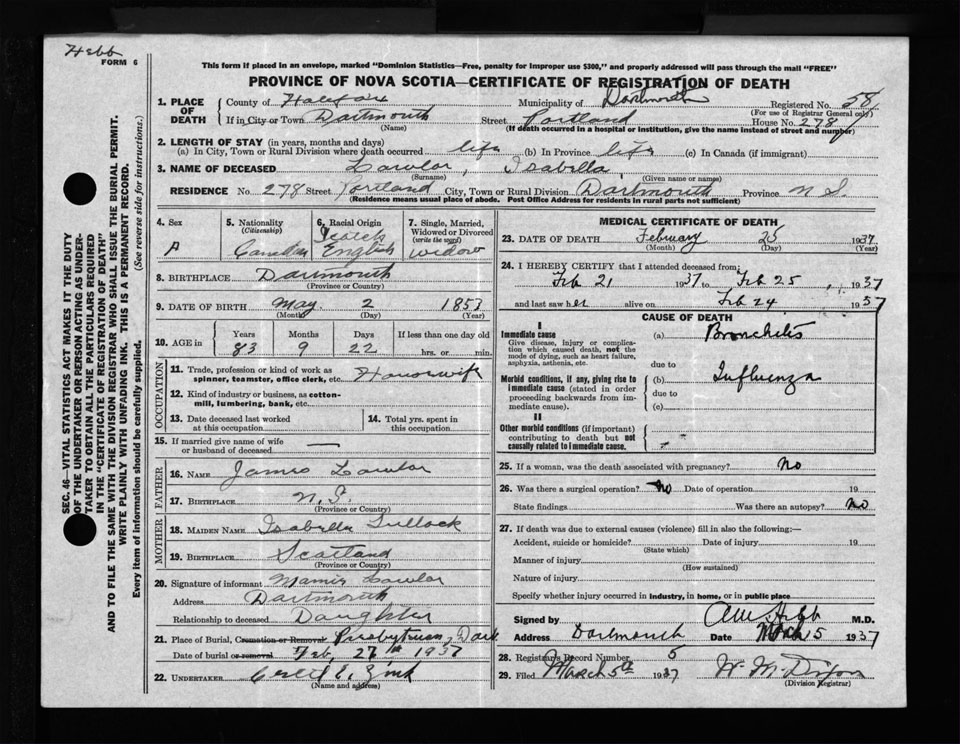 Hebb
FORM 6
This form if placed in an envelope, marked "Dominion Statistics—Free, penalty for improper use $300," and properly addressed will pass through the mail "FREE"
PROVINCE OF NOVA SCOTIA—CERTIFICATE OF REGISTRATION OF DEATH
SEC. 46—VITAL STATISTICS ACT MAKES IT THE DUTY
OF THE UNDERTAKER OR PERSON ACTING AS UNDER-
TAKER TO OBTAIN ALL THE PARTICULARS REQUIRED
IN THE "CERTIFICATE OF REGISTRATION OF DEATH"
AND TO FILE THE SAME WITH THE DIVISION REGISTRAR WHO SHALL ISSUE THE BURIAL PERMIT.
WRITE PLAINLY WITH UNFADING INK. THIS IS A PERMANENT RECORD.
Every item of information should be carefully supplied. (See reverse side for instructions.)
1. PLACE OF DEATH County of Halifax Municipality of Dartmouth Registered No. 58
(For use of Registrar General only)
If in City or Town Dartmouth Street Portland House No. 278
(Name) (If death occurred in a hospital or institution, give the name instead of street and number)
2. LENGTH OF STAY (in years, months and days)
(a) In City, Town or Rural Division where death occurred life (b) In Province life (c) In Canada (if immigrant)
3. NAME OF DECEASED Lawlor, Isabella
(Surname) (Given name or names)
RESIDENCE No. 278 Street Portland City, Town or Rural Division Dartmouth Province N S.
(Residence means usual place of abode. Post Office Address for residents in rural parts not sufficient)
4. Sex 5. Nationality (Citizenship) 6. Racial Origin 7. Single, Married, Widowed or Divorced (write the word)
F Canadian Scotch English widow
8. BIRTHPLACE Dartmouth
(Province or Country)
9. DATE OF BIRTH May 2 1853
(Month) (Day) (Year)
10. AGE in Years Months Days If less than one day old
83 9 22 hrs. or min.
OCCUPATION
11. Trade, profession or kind of work as spinner, teamster, office clerk, etc. Housewife
12. Kind of industry or business, as cotton-mill, lumbering, bank, etc.
13. Date deceased last worked at this occupation 14. Total yrs. spent in this occupation
15. If married give name of wife or husband of deceased —
FATHER
16. NAME James Lawlor
17. BIRTHPLACE N.
(Province or Country)
MOTHER
18. MAIDEN NAME Isabella Tullock
19. BIRTHPLACE Scotland
(Province or Country)
20. Signature of informant Mamie Lawlor
Address Dartmouth
Relationship to deceased Daughter
21. Place of Burial, Cremation or Removal Presbyterian, Dart
Date of burial or removal Feb. 27th 1937
22. UNDERTAKER E. Zink
(Name and address)
MEDICAL CERTIFICATE OF DEATH
23. DATE OF DEATH February 25 1937
(Month) (Day) (Year)
24. I HEREBY CERTIFY that I attended deceased from:
Feb 21 1937 to Feb 25, 1937
and last saw her alive on Feb 24 1937
CAUSE OF DEATH
I
Immediate cause (a) Bronchitis
Give disease, injury or complication which caused death, not the mode of dying, such as heart failure, asphyxia, asthenia, etc. due to
Morbid conditions, if any, giving rise to immediate cause (stated in order proceeding backwards from immediate cause). (b) Influenza
due to
(c)
II
Other morbid conditions (if important) contributing to death but not causally related to immediate cause.
25. If a woman, was the death associated with pregnancy? No
26. Was there a surgical operation? No Date of operation 19
State findings Was there an autopsy? No
27. If death was due to external causes (violence) fill in also the following:—
Accident, suicide or homicide? Date of injury 19
(State which)
Manner of injury
(How sustained)
Nature of injury
Specify whether injury occurred in industry, in home, or in public place
Signed by Hebb M.D.
Address Dartmouth Date March 5 1937
28. Registrar's Record Number 5
29. Filed March 5th 1937 W. M.
(Division Registrar)